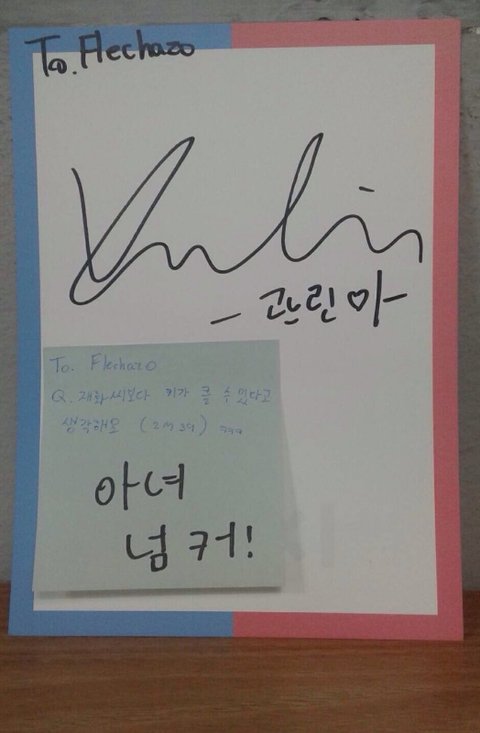 To. Flechazo
- 관린
To. Flechazo
Q. 재환씨보다 키가 클 수 있다고
생각해요 ㅋㅋㅋ
아녀
넘 커!